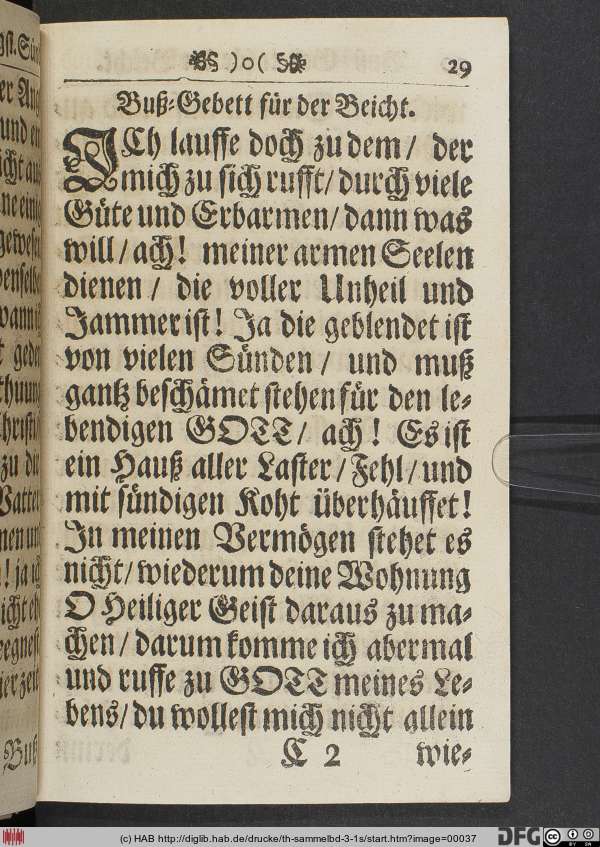 )o( 29
Buß-Gebett für der Beicht.
ICh lauffe doch zu dem/ der
mich zu sich rufft/ durch viele
Güte und Erbarmen/ dann was
will/ ach! meiner armen Seelen
dienen/ die voller Unheil und
Jammer ist! Ja die geblendet ist
von vielen Sünden/ und muß
gantz beschämet stehen für den le-
bendigen GOTT/ ach! Es ist
ein Hauß aller Laster/ Fehl/ und
mit sündigen Koht überhäuffet!
In meinen Vermögen stehet es
nicht/ wiederum deine Wohnung
O Heiliger Geist daraus zu ma-
chen/ darum komme ich abermal
und ruffe zu GOTT meines Le-
bens/ du wollest mich nicht allein
C 2 wie-
Buß
(c) HAB http://diglib.hab.de/drucke/th-sammelbd-3-1s/start.htm?image=00037
DFG
cc BY SA